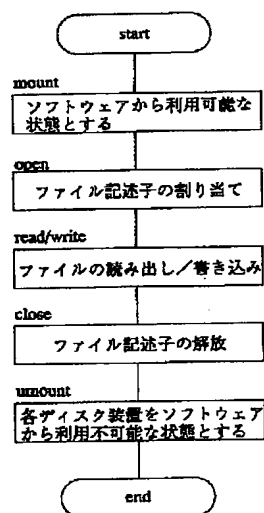 start
mount
ソフトウェアから利用可能な
状態とする
open
ファイル記述子の割り当て
read/write
ファイルの読み出し／書き込み
close
ファイル記述子の解放
umount
各ディスク装置をソフトウェア
から利用不可能な状態とする
end